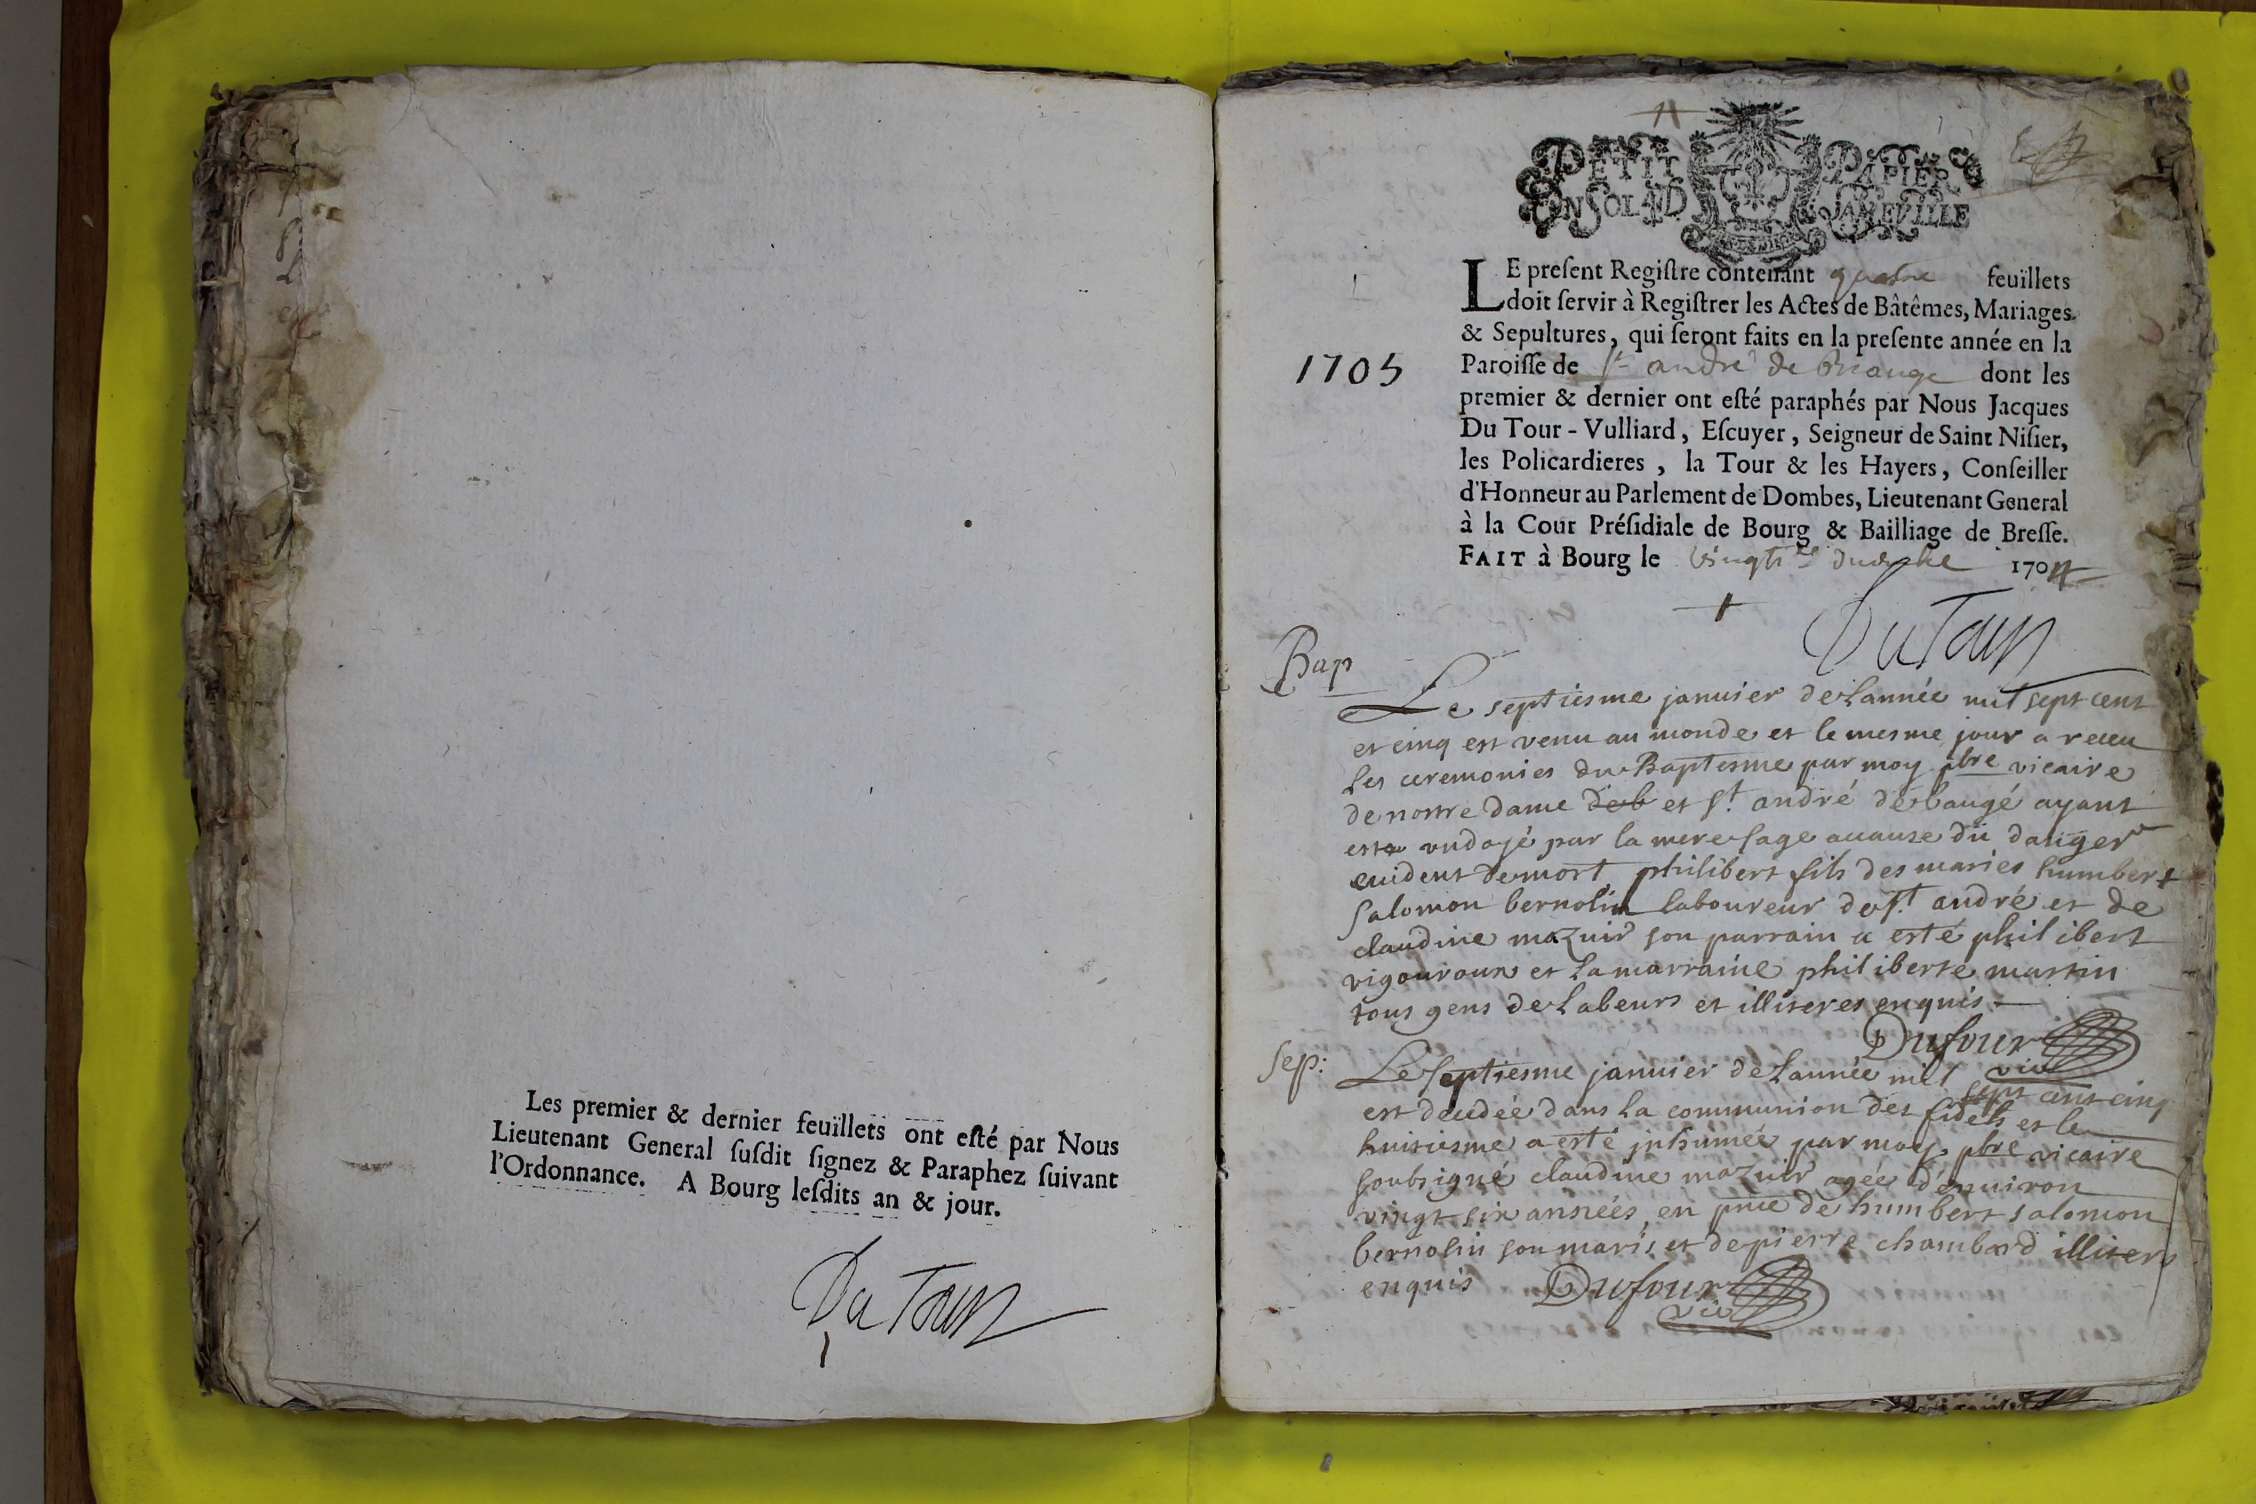 Les premier & dernier feuïllets ont esté par Nous
Lieutenant General susdit signez & Paraphez suivant
l'Ordonnance. A Bourg lesdits an & jour.
DuTour
PETIT PAPIER
UN SOL 4 D LA FEVILLE
LE present Registre contenant quatre feuïllets
doit servir à Registrer les Actes de Bâtêmes, Mariages
& Sepultures, qui seront faits en la presente année en la
1705
Paroisse de St andré de dont les
premier & dernier ont esté paraphés par Nous Jacques
Du Tour-Vulliard, Escuyer, Seigneur de Saint Nisier,
les Policardieres, la Tour & les Hayers, Conseiller
d'Honneur au Parlement de Dombes, Lieutenant General
à la Cour Présidiale de Bourg & Bailliage de Bresse.
FAIT à Bourg le 1704
DuTour
Bap
Le septiesme janvier de lannée mil sept cent
et cinq est venu au monde et le mesme jour a receu
les ceremonies du Baptesme par moy pbre vicaire
de nostre dame deb et St. andré de baugé ayant
esté undoyé par la mere sage a cause du danger
evident de mort philibert fils des maries humbert
Salomon bernolin laboureur de St andré et de
claudine mazuir son parrain a esté philibert
vigouroux et la marraine philiberte martin
tous gens de labeurs et illiteres enquis
Dufour
vic
Sep:
Le septiesme janvier de lannée mil sept cent cinq
est decedée dans la communion des fidels et le
huitiesme a esté inhumée par moy pbre vicaire
soubsigné claudine mazuir agée denviron
vingt six années, en pnce de humbert salomon
bernolin son maris, et de pierre chambard illiters
enquis Dufour
vic